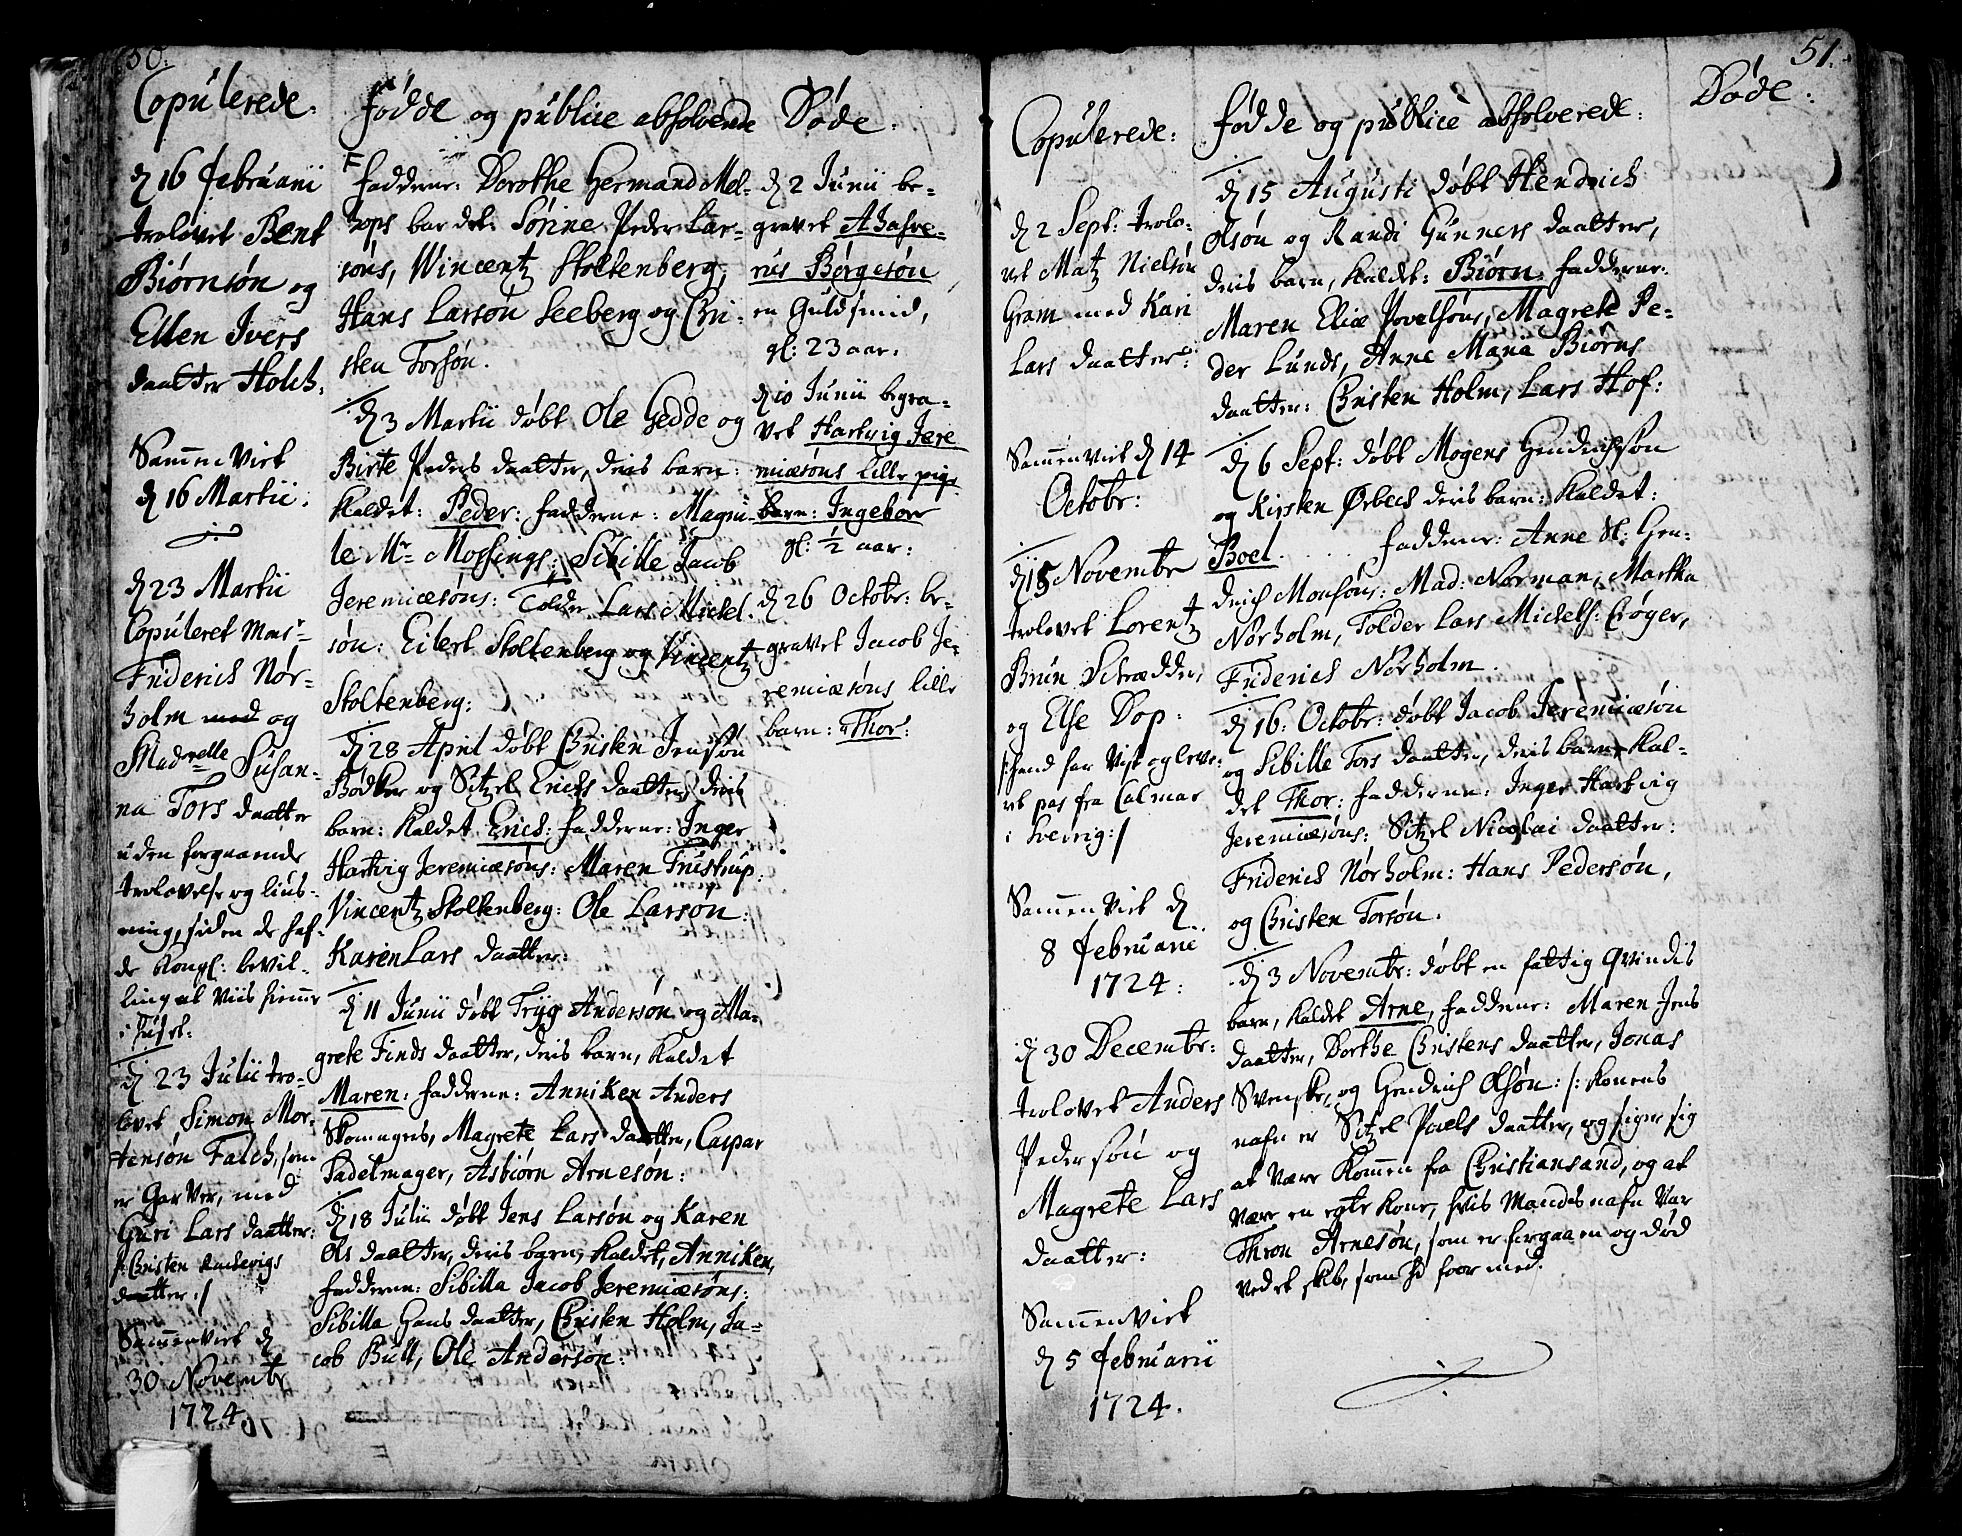 50.
Copulerede.
d 16 Februarii
trolovet Bent
Biørnsøn og
Ellen Ivers
daatter Holch.
Sammenviet
d 16 Martii.
d 23 Martii
Copuleret Monsr
Friderich Nør-
holm med og
Madmlle Susan-
na Tors daatter
uden forgaaende
trolovelse og lius-
ning, siden de haf-
de Kongl: bevil-
ling at viis hiemme
i huset.
d 23 Julii tro-
lovet Simon Mor-
tensøn Falch, som
er Garver, med
Guri Lars daatter:
/: Christen Ludevigs
daatter :/
Sammenviet d
30 Novembr
1724.
Fødde og publice absolverede
F Fadderne: Dorothe Hermand Mel-
zops bar det: Sørine Peder Lar-
søns, Wincentz Stoltenberg,
Hans Larsøn Seeberg og Chri-
sten Torsøn.
d 3 Martii døbt Ole Gedde og
Birte Peders daatter, deris barn:
kaldet: Peder: Fadderne: Magni-
le Mr Mossings: Sibille Jacob
Jeremiæsøns: Tolder Lars Mickel-
søn: Eilert Stoltenberg og Vincentz
Stoltenberg:
d 28 April døbt Christen Jensøn
Bødker og Sitzel Erichs daatter, deris
barn: kaldet Erich: Fadderne: Inger
Hartvig Jeremiæsøns: Maren Trustrup:
Vincentz Stoltenberg: Ole Larsøn:
Karen Lars daatter:
d 11 Junii døbt Tryg Andersøn og Ma-
grete Finds daatter, deris barn, kaldet
Maren: Fadderne: Anniken Anders
Skomagers, Magrete Lars daatter, Caspar
Sadelmager, Asbiørn Arnesøn:
d 18 Julii døbt Jens Larsøn og Karen
Ols daatter, deris barn, kaldet, Anniken,
Fadderne: Sibilla Jacob Jeremiæsøns:
Sibilla Hans daatter, Christen Holm, Ja-
cob Bull, Ole Andersøn:
Døde.
d 2 Junii be-
gravet Ahasve-
rus Børgesøn
en Guldsmid,
gl: 23 aar.
d 10 Junii begra-
vet Hartvig Jere
miæsøns lille pige
barn: Ingebor
gl: 1/2 aar:
d 26 Octobr: be-
gravet Jacob Je-
remiæsøns lille
barn: Thor:
51.
Copulerede:
d 2 Sept: trolo-
vet Matz Nielsøn
Gram med Kari
Lars daatter:
Sammenviet d 14
Octobr:
d 15 Novembr
trolovet Lorentz
Brun Skrædder,
og Else Dop:
/: hand har vist og leve-
ret pas fra Calmar
i Sverrig :/
Sammenviet d
8 Februarii
1724:
d 30 Decembr:
trolovet Anders
Pedersøn og
Magrete Lars
daatter:
Sammenviet
d 5 Februarii
1724.
Fødde og publicè absolverede:
d 15 Augusti døbt Hendrich
Olsøn og Randi Gunners daatter,
deris barn, kaldet: Biørn. Fadderne:
Maren Eliæ Povelsøns, Magrete Pe-
der Lunds, Anne Maria Biørns
daatter: Christen Holm, Lars Hof:
d 6 Sept: døbt Mogens Hendrichsøn
og Kirsten Ørbech deris barn: kaldet:
Boel. Fadderne: Anne Sl: Hen-
drich Monsøns: Mad: Norman, Martha
Nørholm, Tolder Lars Mickels: Crøger,
Friderich Nørholm.
d 16. Octobr: døbt Jacob Jeremiæsøn
og Sibille Tors daatter, deris barn, kal-
det Thor: Fadderne: Inger Hartvig
Jeremiæsøns: Sitzel Nicolai daatter:
Friderich Nørholm: Hans Pedersøn,
og Christen Torsøn.
d 3 Novembr: døbt en fattig qvindis
barn, kaldet Arne, Fadderne: Maren Jens
daatter, Dorthe Christens daatter, Jonas
Svenske, og Hendrich Olsøn: /: Konens
nafn er Sitzel Povels daatter, og siger sig
at være kommen fra Christiansand, og at
være en egte kone, hvis Mands nafn var
Thron Arnesøn, som er forgaaen og død
ved et skib, som hd foer med.
Døde: